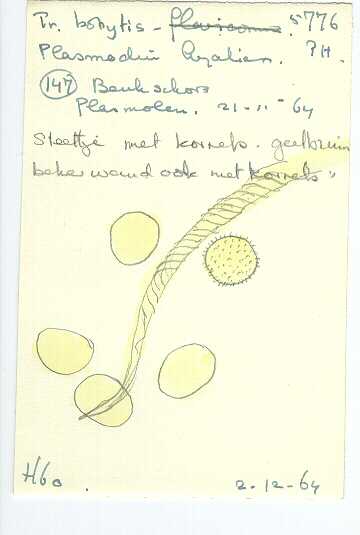 Tr. botrytis - flavicoma. 5776
Plasmodiu hyalien. PH.
(147) Beukschors
Plasmolen. 21-11-64
Steeltje met korrels. geelbruin
beker wand ook met korrels "
H60.
2-12-64